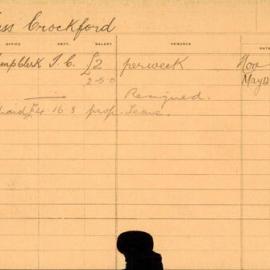 ss Crockford
OFFICE DEPT. SALARY REMARKS
Temp Clerk T. C. £2 per week Nov
2-5-0 May
Resigned.
Paid £4 16 3 prop. Leave.